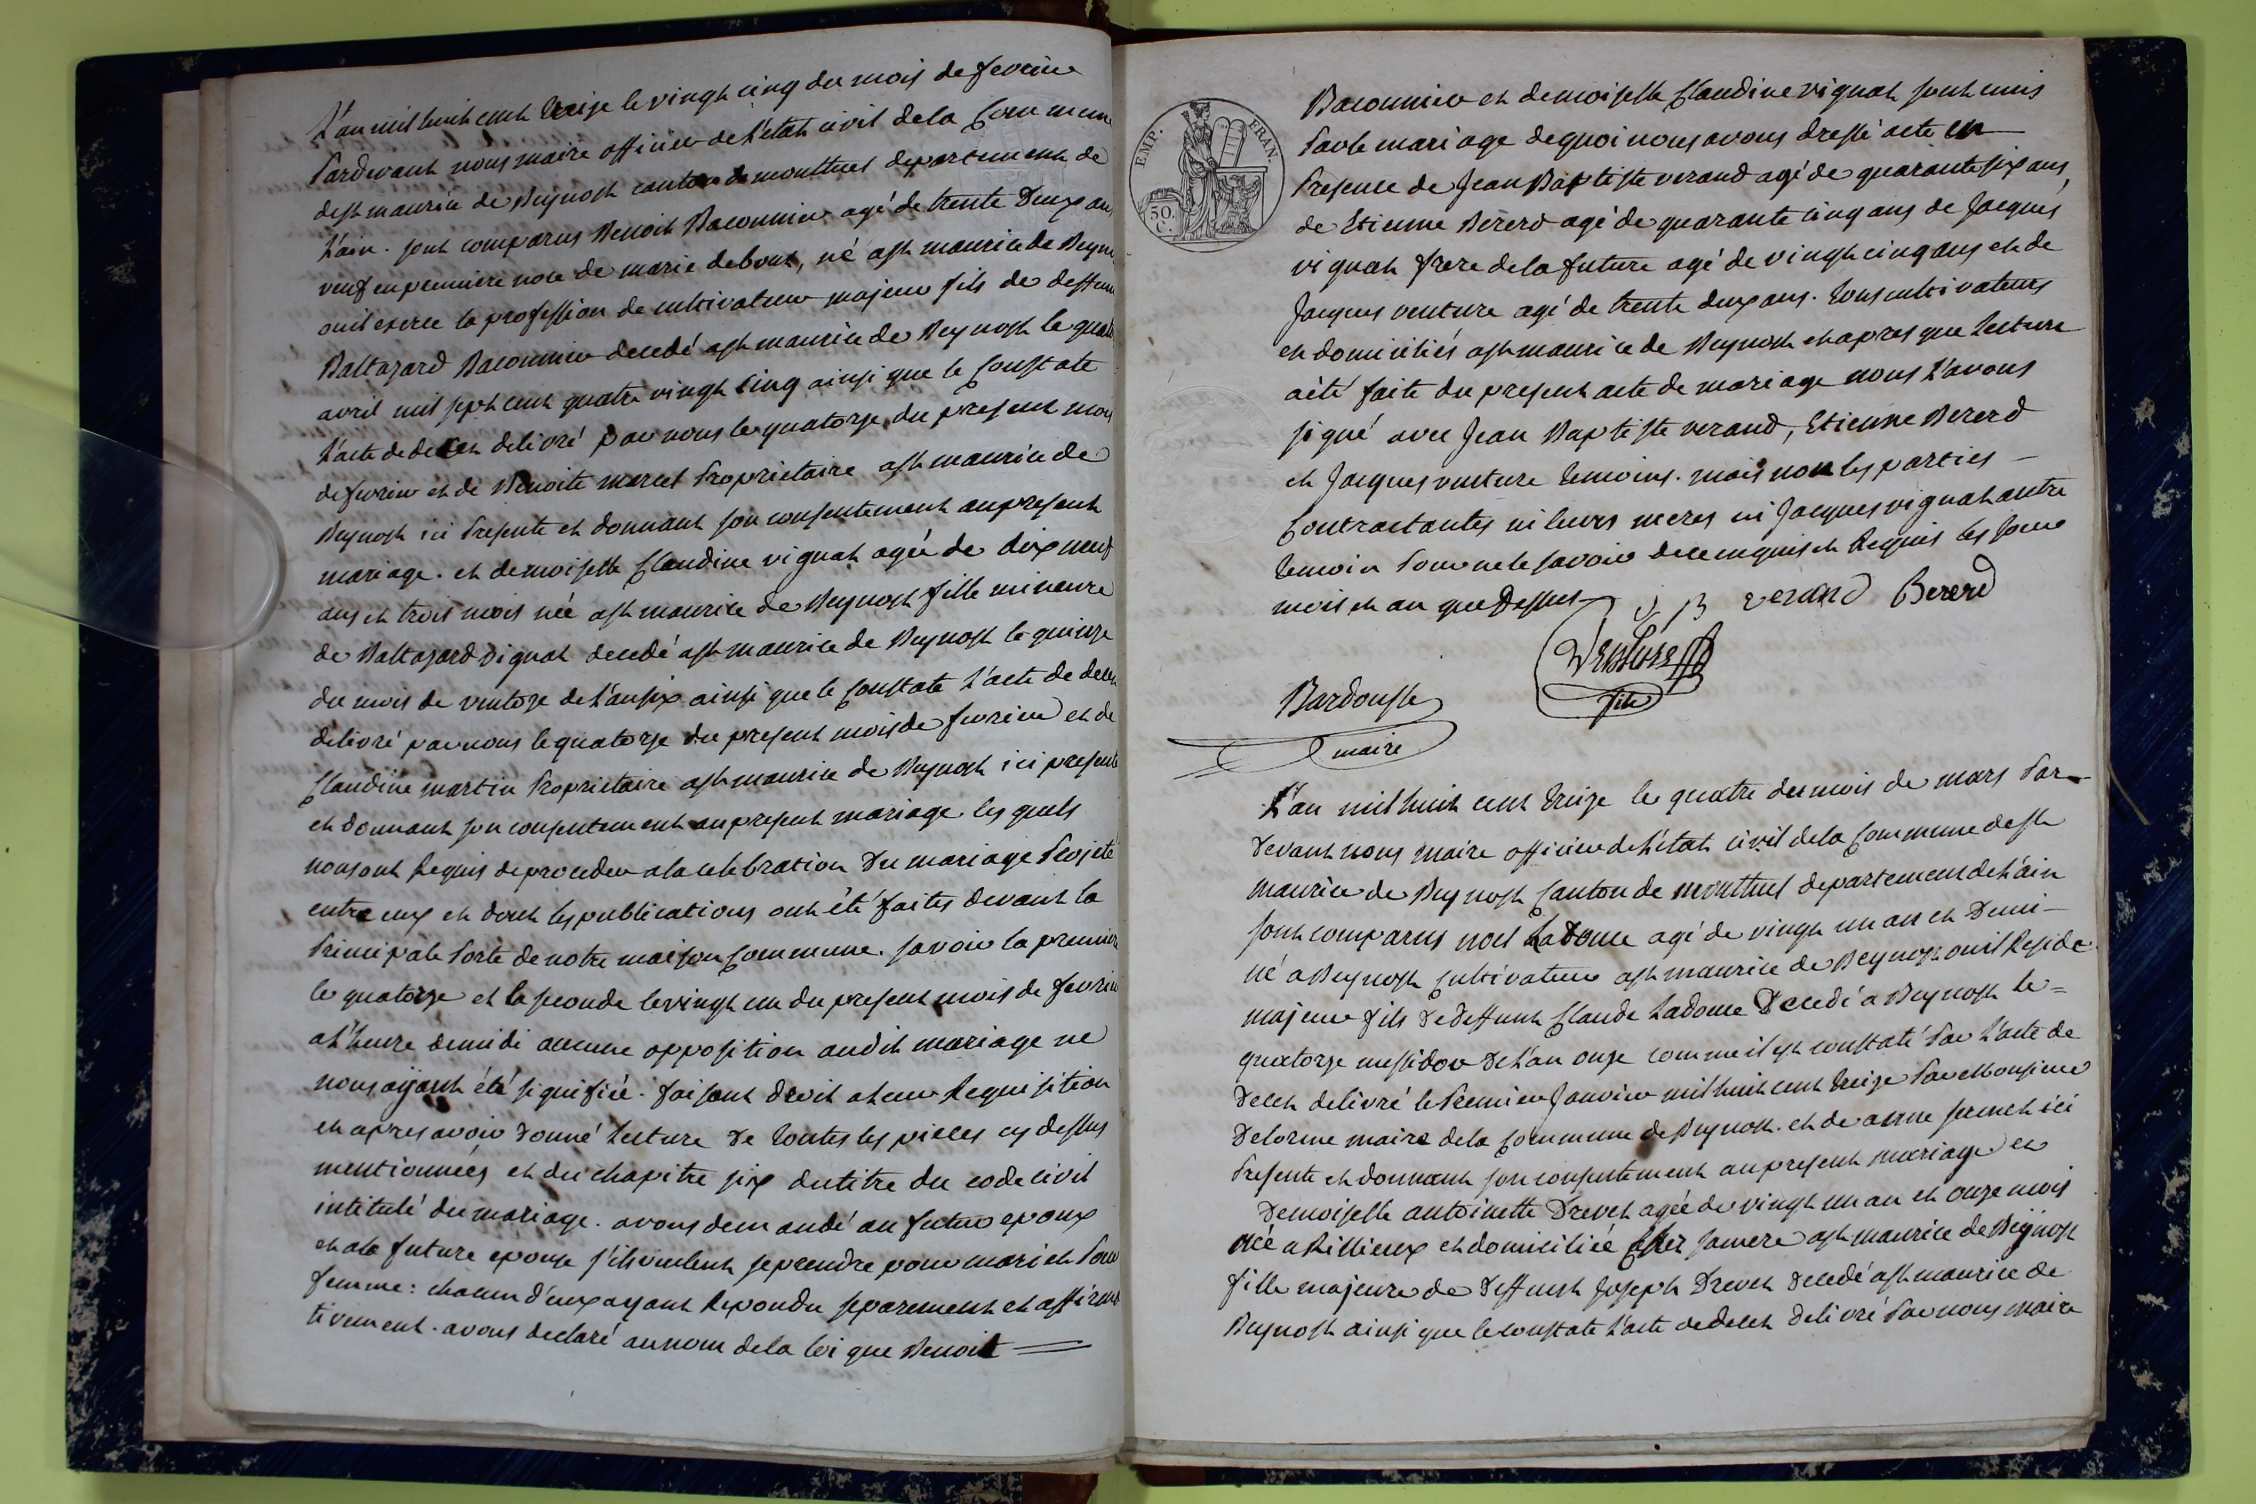 L'an mil huit cent treize le vingt cinq du mois de fevrier
Pardevant nous maire officier de l'etat civil de la Commune
de st maurice de Beynost canton de montluel departement de
L'ain. sont comparus Benoit Baconnier agé de trente deux ans
veuf en premiere noce de marie debout, né a st maurice de Beyno
ou il exerce la profession de cultivateur majeur fils de deffunt
Baltazard Baconnier decedé a st maurice de Beynost le quatre
avril mil sept cent quatre vingt cinq ainsi que le Constate
L'acte de decen delivré par nous le quatorze du present mois
de fevrier et de Benoite marcel Proprietaire a st maurice de
Beynost ici Presente et donnant son consentement au present
mariage. et demoiselle Claudine vignat agée de dix neuf
ans et trois mois née a st maurice de Beynost fille mineure
de Baltazard vignat decedé a st maurice de Beynost le quinze
du mois de ventoze de l'an six ainsi que le Constate L'acte de decen
delivré par nous le quatorze du present mois de fevrier et de
Claudine martin Proprietaire a st maurice de Beynost ici presente
et donnant son consentement au present mariage les quels
nous ont Requis de proceder a la celebration Du mariage Projeté
entre eux et dont les publications ont été faites devant la
Principale Porte de notre maison Commune. savoir la premiere
le quatorze et la seconde le vingt un du present mois de fevrier
a l'heure de midi aucune opposition audit mariage ne
nous ayant été signifiée. faisant droit a leur Requisition
et apres avoir Donné Lecture De toutes les pieces cy dessus
mentionnées et du chapitre six du titre du code civil
intitulé du mariage. avons demandé au futur epoux
et a la future epouse s'ils veulent se prendre pour mari et Pour
femme: chacun d'eux ayant Repondu separement et affirma
tivement. avons declaré au nom de la loi que Benoit
EMP. FRAN.
50.
C.
Baconnier et demoiselle Claudine vignat sont unis
Par le mariage de quoi nous avons dressé acte en
Presence de Jean Baptiste verand agé de quarante six ans,
de Etienne Bererd agé de quarante cinq ans de Jacques
vignat frere de la future agé de vingt cinq ans et de
Jacques venture agé de trente deux ans. tous cultivateurs
et domiciliés a st maurice de Beynost et apres que Lecture
a été faite du present acte de mariage nous L'avons
signé avec Jean Baptiste verand, Etienne Bererd
et Jacques venture temoins. mais non les parties
Contractantes ni leurs meres ni Jacques vignat autre
temoin Pour ne le savoir de ce enquis et Requis les jour
mois et an que Dessus J B verand Bererd
Venture
fils
Bardousse
maire
L'an mil huit cent treize le quatre du mois de mars Par
Devant nous maire officier de l'etat civil de la Commune de st
maurice de Beynost Canton de montluel departement de L'ain
sont comparus noel Ladome agé de vingt un an et Demi
né a Beynost Cultivateur a st maurice de Beynost ou il Reside
majeur fils De deffunt Claude Ladome Decedé a Beynost le
quatorze messidor De l'an onze comme il est constaté Par L'acte de
Decen delivré le Premier Janvier mil huit cent treize Par Monsieur
Delorme maire de la Commune de Beynost. et de anne
Presente et donnant son consentement au present mariage et
Demoiselle antoinette Drevet agée de vingt un an et onze mois
née a Rillieux et domiciliée Chez sa mere a st maurice de Beynost
fille majeure de Deffunt Joseph Drevet Decedé a st maurice de
Beynost ainsi que le constate L'acte de decen Delivré Par nous maire